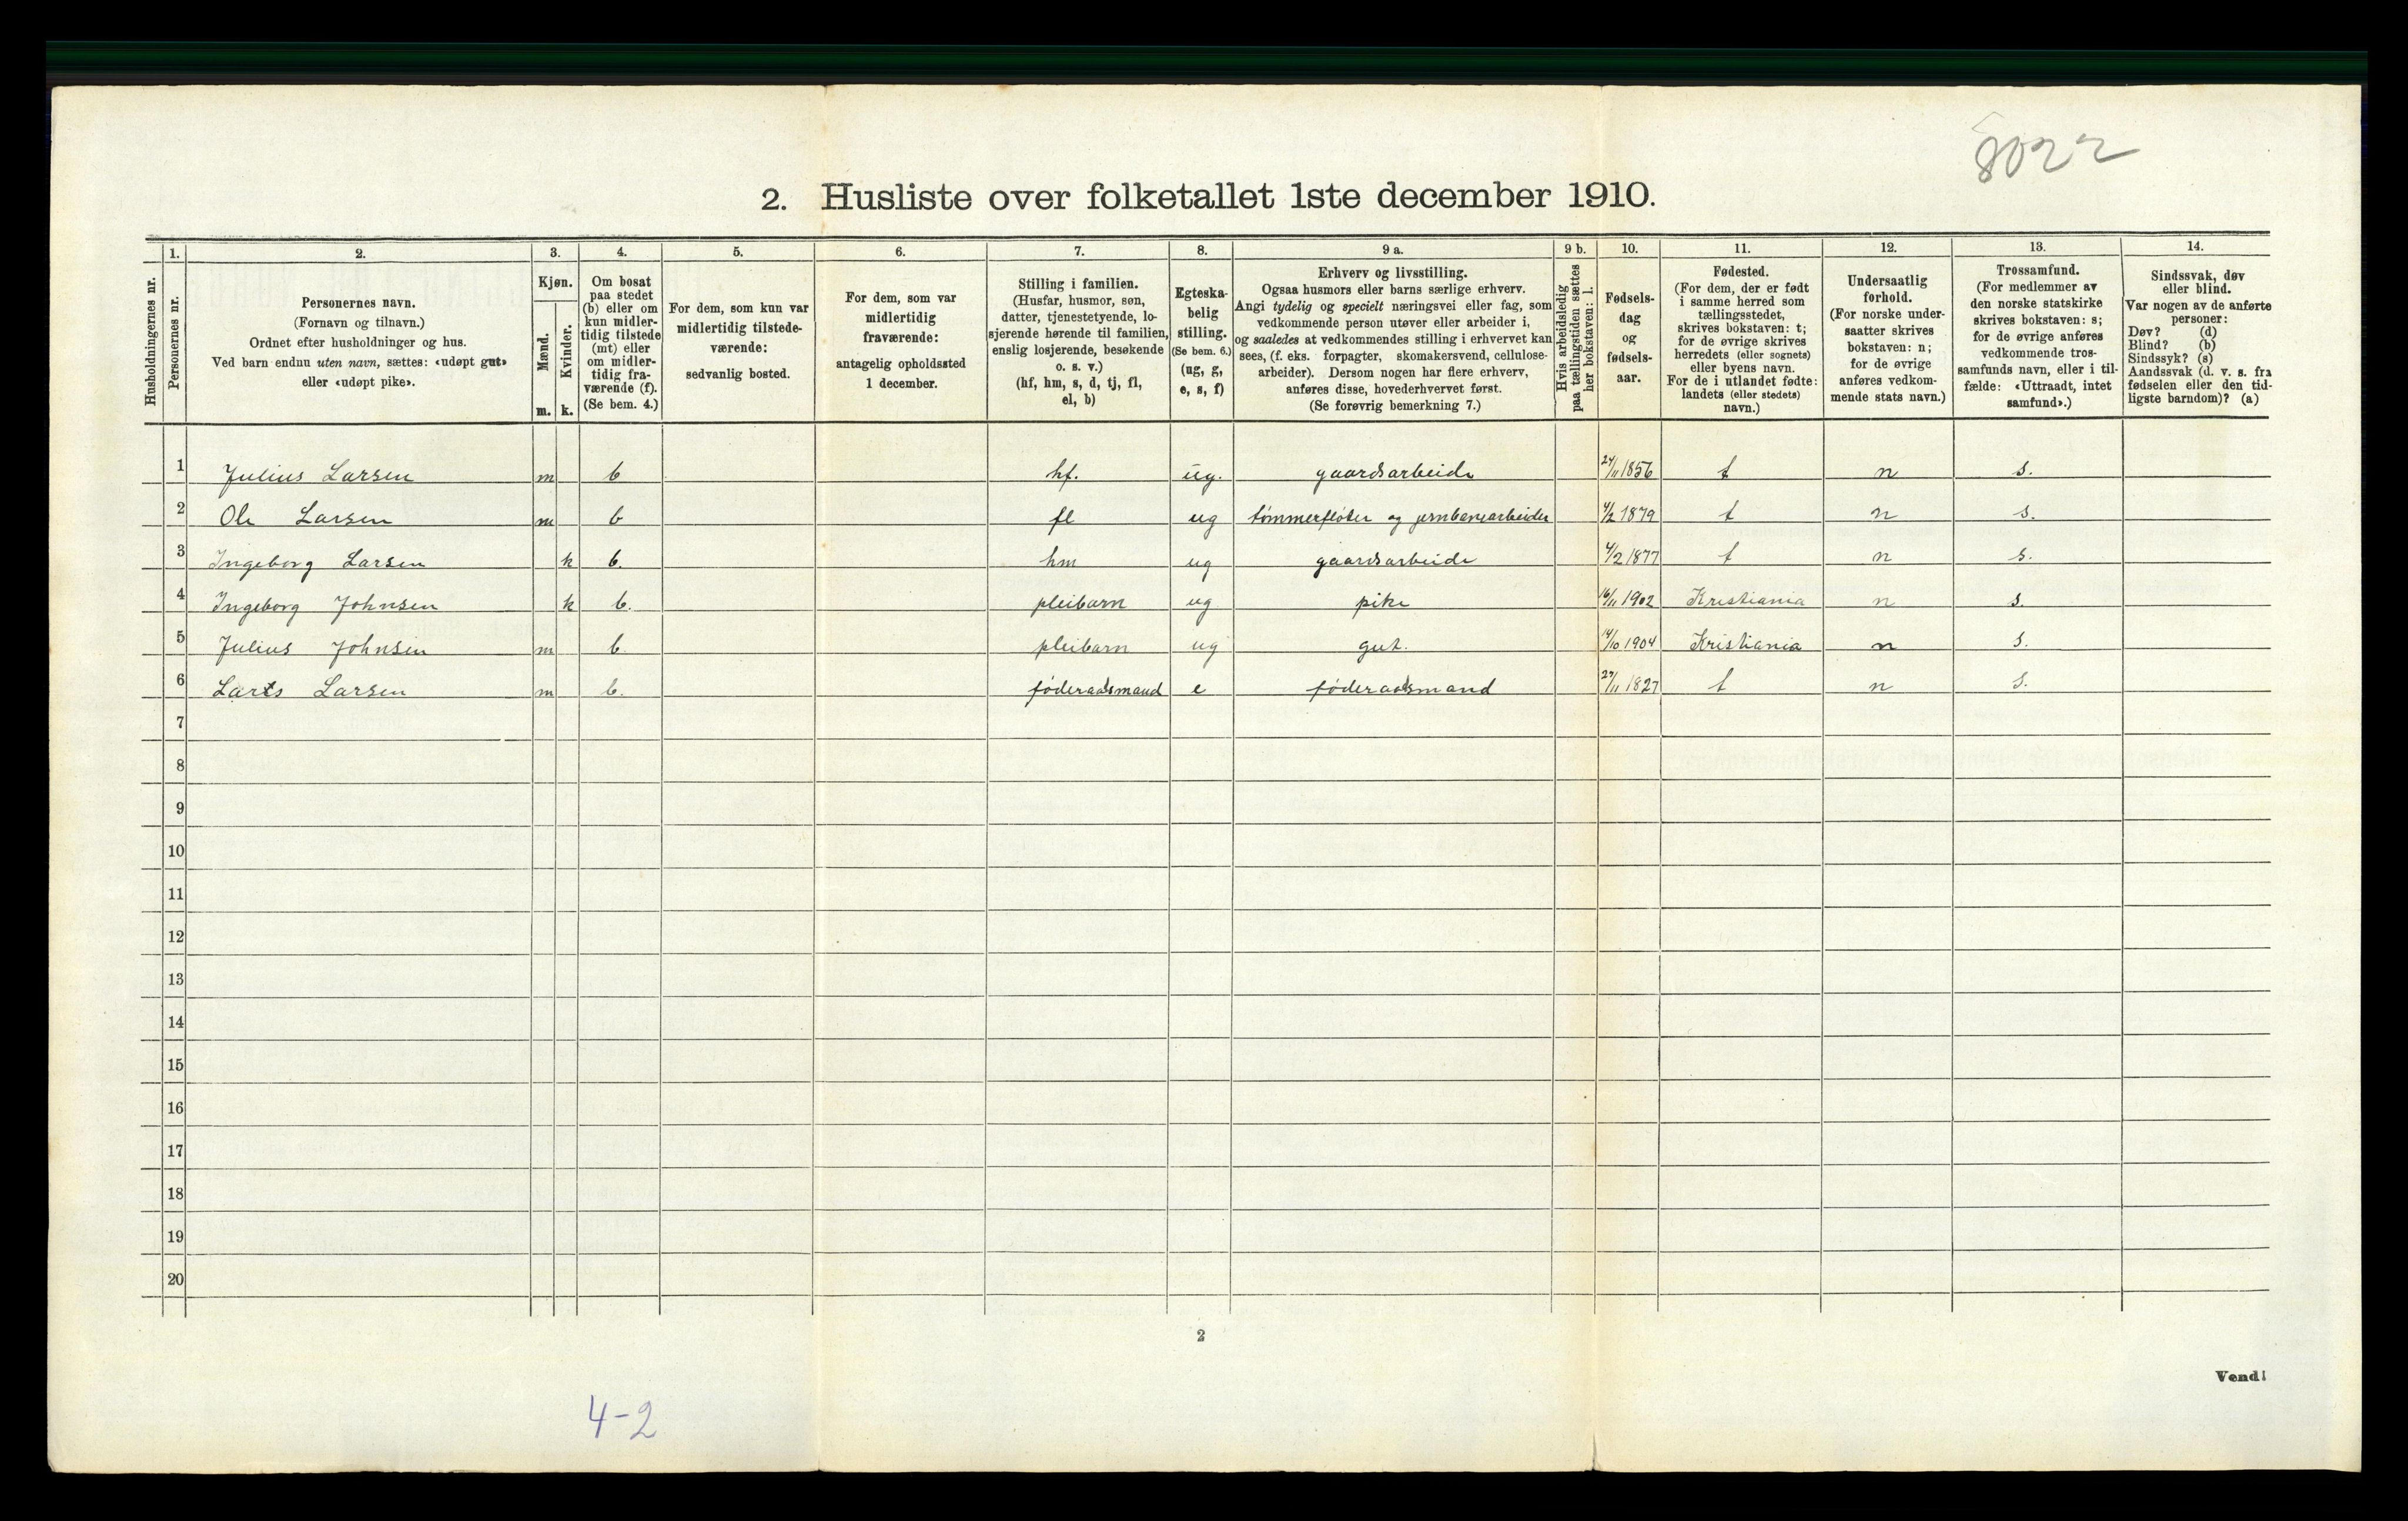 8022
2. Husliste over folketallet 1ste december 1910.
Husholdningernes nr.
1.
Personernes nr.
2.
Personernes navn.
(Fornavn og tilnavn.)
Ordnet efter husholdninger og hus.
Ved barn endnu uten navn, sættes: «udøpt gut»
eller «udøpt pike».
3.
Kjøn.
Mænd.
m.
Kvinder.
k.
4.
Om bosat
paa stedet
(b) eller om
kun midler-
tidig tilstede
(mt) eller
om midler-
tidig fra-
værende (f).
(Se bem. 4.)
5.
For dem, som kun var
midlertidig tilstede-
værende:
sedvanlig bosted.
6.
For dem, som var
midlertidig
fraværende:
antagelig opholdssted
1 december.
7.
Stilling i familien.
(Husfar, husmor, søn,
datter, tjenestetyende, lo-
sjerende hørende til familien,
enslig losjerende, besøkende
o. s. v.)
(hf, hm, s, d, tj, fl,
el, b)
8.
Egteska-
belig
stilling.
(Se bem. 6.)
(ug, g,
e, s, f)
9 a.
Erhverv og livsstilling.
Ogsaa husmors eller barns særlige erhverv.
Angi tydelig og specielt næringsvei eller fag, som
vedkommende person utøver eller arbeider i,
og saaledes at vedkommendes stilling i erhvervet kan
sees, (f. eks. forpagter, skomakersvend, cellulose-
arbeider). Dersom nogen har flere erhverv,
anføres disse, hovederhvervet først.
(Se forøvrig bemerkning 7.)
9 b.
Hvis arbeidsledig
paa tællingstiden sættes
her bokstaven: l.
10.
Fødsels-
dag
og
fødsels-
aar.
11.
Fødested.
(For dem, der er født
i samme herred som
tællingsstedet,
skrives bokstaven: t;
for de øvrige skrives
herredets (eller sognets)
eller byens navn.
For de i utlandet fødte:
landets (eller stedets)
navn.)
12.
Undersaatlig
forhold.
(For norske under-
saatter skrives
bokstaven: n;
for de øvrige
anføres vedkom-
mende stats navn.)
13.
Trossamfund.
(For medlemmer av
den norske statskirke
skrives bokstaven: s;
for de øvrige anføres
vedkommende tros-
samfunds navn, eller i til-
fælde: «Uttraadt, intet
samfund».)
14.
Sindssvak, døv
eller blind.
Var nogen av de anførte
personer:
Døv? (d)
Blind? (b)
Sindssyk? (s)
Aandssvak (d. v. s. fra
fødselen eller den tid-
ligste barndom)? (a)
1 Julius Larsen m b hf. ug. gaardsarbeide 24/11 1856 t n s.
2 Ole Larsen m b fl ug tömmerflöter og jernbanearbeider 4/2 1879 t n s.
3 Ingeborg Larsen k b. hm ug gaardsarbeide 4/2 1877 t n s.
4 Ingeborg Johnsen k b. pleibarn ug pike 16/11 1902 Kristiania n s.
5 Julius Johnsen m b pleibarn ug gut. 14/10 1904 Kristiania n s.
6 Lars Larsen m b. föderaadsmand e föderaadsmand 27/11 1827 t n s.
7
8
9
10
11
12
13
14
15
16
17
18
19
20
2
Vend!
4-2